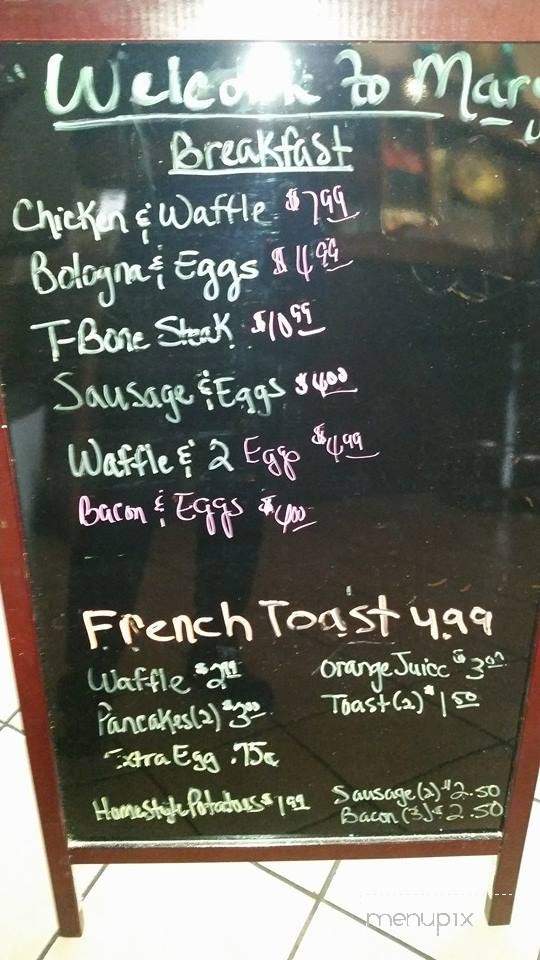 Welcome to Mary
Breakfast
Chicken & Waffle $7.99
Bologna & Eggs $4.99
T-Bone Steak $10.99
Sausage & Eggs $4.00
Waffle & 2 Eggs $4.99
Bacon & Eggs $4.00
French Toast 4.99
Waffle $2.99
Orange Juice $3.00
Pancakes(2) $3.00
Toast(2) $1.50
Extra Egg .75¢
Homestyle Potatoes $1.99
Sausage(2) $2.50
Bacon(3) $2.50
menupix